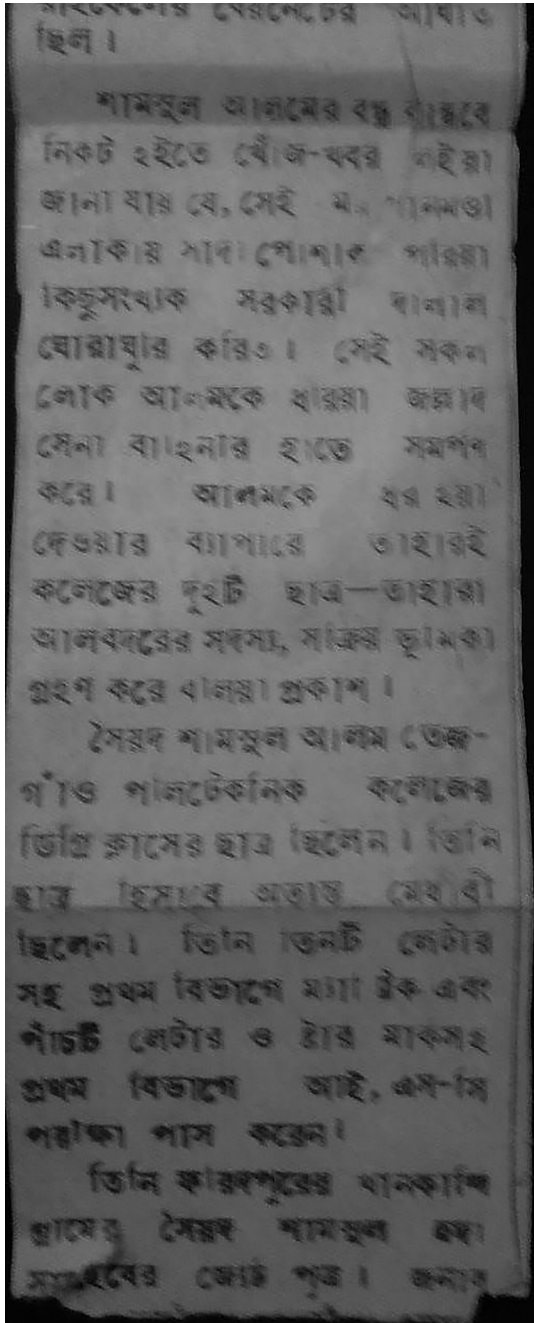 রাইফেলের বেয়নেটের আঘাত
ছিল।
শামসুল আলমের বন্ধু বান্ধবে
নিকট হইতে খোঁজ-খবর লইয়া
জানা যায় যে, সেই সময় ধানমণ্ডী
এলাকায় সাদা পোশাক পরিয়া
কিছুসংখ্যক সরকারী দালাল
ঘোরাঘুরি করিত। সেই সকল
লোক আলমকে ধরিয়া জল্লাদ
সেনা বাহিনীর হাতে সমর্পণ
করে। আলমকে ধরাইয়া
দেওয়ার ব্যাপারে তাহারই
কলেজের দুইটি ছাত্র—তাহারা
আলবদরের সদস্য, সক্রিয় ভূমিকা
গ্রহণ করে বলিয়া প্রকাশ।
সৈয়দ শামসুল আলম তেজ-
গাঁও পলিটেকনিক কলেজের
ডিগ্রি ক্লাসের ছাত্র ছিলেন। তিনি
ছাত্র হিসাবে অত্যন্ত মেধাবী
ছিলেন। তিনি তিনটি লেটার
সহ প্রথম বিভাগে ম্যাট্রিক এবং
পাঁচটি লেটার ও ষ্টার মার্কসহ
প্রথম বিভাগে আই, এস-সি
পরীক্ষা পাস করেন।
তিনি ফরিদপুরের
গ্রামের সৈয়দ শামসুল হুদা
সাহেবের জ্যেষ্ঠ পুত্র। জনাব